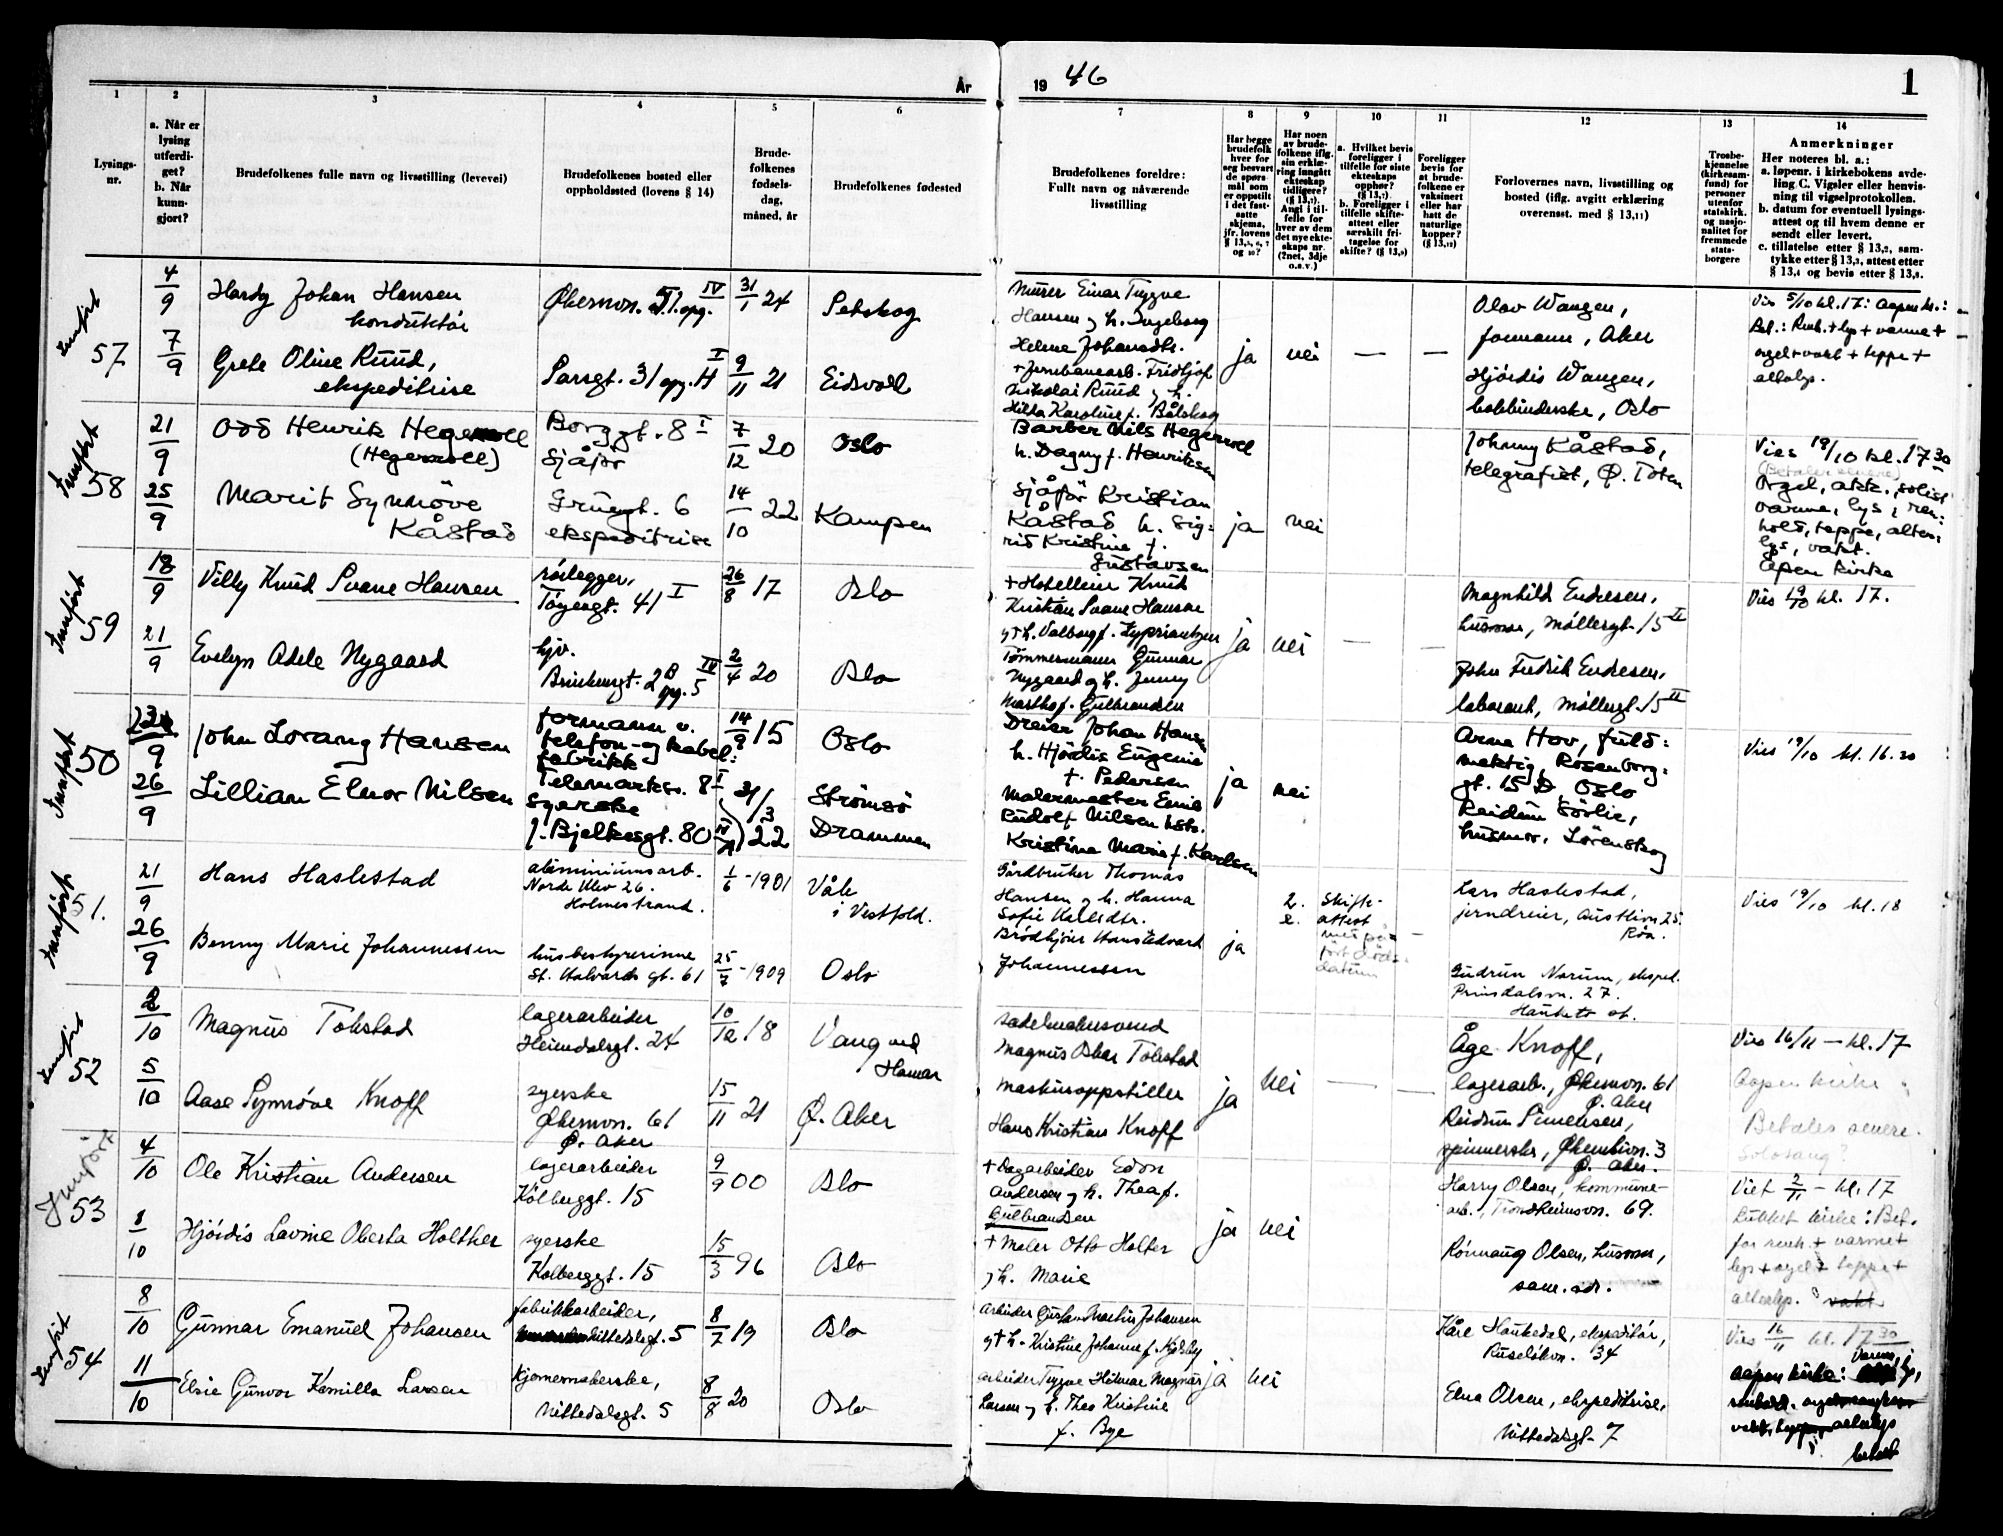 År
19 46
1
1
2
3
4
5
6
7
8
9
10
11
12
13
14
Lysings-
nr.
a. Når er
lysing
utferdi-
get?
b. Når
kunn-
gjort?
Brudefolkenes fulle navn og livsstilling (levevei)
Brudefolkenes bosted eller
oppholdssted (lovens § 14)
Brude-
folkenes
fødsels-
dag,
måned, år
Brudefolkenes fødested
Brudefolkenes foreldre:
Fullt navn og nåværende
livsstilling
Har begge
brudefolk
hver for
seg besvart
de spørs-
mål som
er oppstilt
i det fast-
satte
skjema,
jfr. lovens
§ 13,5, 6, 7
og 10?
Har noen
av brude-
folkene iflg.
sin erklæ-
ring inngått
ekteskap
tidligere?
(§ 13,7).
Angi i til-
felle for
hver av dem
det nye ekte-
skaps nr.
(2net, 3dje
o.s.v.)
a. Hvilket bevis
foreligger i
tilfelle for siste
ekteskaps
opphør?
(§ 13,7)
b. Foreligger i
tilfelle skifte-
attest eller
særskilt fri-
tagelse for
skifte? (§ 13,9)
Foreligger
bevis for
at brude-
folkene er
vaksinert
eller har
hatt de
naturlige
kopper?
(§ 13,12)
Forlovernes navn, livsstilling og
bosted (iflg. avgitt erklæring
overensst. med § 13,11)
Trosbe-
kjennelse
(kirkesam-
fund) for
personer
utenfor
statskirk.
og nasjo-
nalitet for
fremmede
stats-
borgere
Anmerkninger
Her noteres bl. a.:
a. løpenr. i kirkebokens avde-
ling C. Vigsler eller henvis-
ning til vigselprotokollen.
b. datum for eventuell lysings-
attest og til hvem denne er
sendt eller levert.
c. tillatelse etter § 13,2, sam-
tykke etter § 13,3, attest etter
§ 13,4 og bevis etter § 13,8.
Innført
57
4/9
7/9
Hardy Johan Hansen
konduktør
Grete Oline Ruud,
ekspeditrise
Økernvn. 51 opg. IV
Sarsgt. 31 opg. H I
31/1 24
9/11 21
Petskog
Eidsvoll
Murer Einar Trygve
Hansen og h. Ingeborg
Helene Johansdtr.
+ Jernbanearb. Fridtjof
Nikolai Ruud og h.
Hilda Karoline f. Bålskog
ja
nei
—
—
Olav Wangen,
formann, Aker
Hjørdis Wangen,
bokbinderske, Oslo
Vies 5/10 kl. 17: Aapen ki.:
Bet.: Renh. + lys + varme +
orgel + vakt + teppe +
alterlys.
Innført
58
21/9
25/9
Odd Henrik Hegermoll
(Hegermoll)
Marit Synnöve
Kåstad
Borggt. 8 I
Sjåfør
Grünergt. 6
ekspeditrise
7/12 20
14/10 22
Oslo
Kampen
Barber Nils Hegermoll
h. Dagny f. Henriksen
Sjåför Kristian
Kåstad h. Sig:
rid Kristine f.
Gustavsen
ja
nei
Johnny Kåstad,
telegrafist, Ø. Toten
Vies 19/10 kl. 17 30
(Betaler senere)
Orgel, akk., solist
varme, lys, ren:
hold, teppe, alter:
lys, vakt.
Åpen kirke
Innført
59
18/9
21/9
Villy Knud Svane Hansen
Evelyn Adele Nygaard
rørlegger,
Tøyengt. 41 I
hjv.
Brinkengt. 2B opg. 5 IV
26/8 17
2/4 20
Oslo
Oslo
+ Hotelleier Knud
Kristian Svane Hansen
og + h. Valborg f. Zypriantzen
Tømmermann Gunnar
Nygaard og h. Jenny
Martha f. Gulbrandsen
ja
nei
—
—
Magnhild Endresen,
husmor, Møllergt. 15 II
John Fredrik Endresen,
laborant, Møllergt. 15 II
Vies 19/10 kl. 17.
Innført
50
23/9
26/9
John Lorang Hansen
Lillian Elnor Nilsen
formann v.
telefon- og kabel:
fabrikk
Telemarksv. 8 I
syerske
J. Bjelkesgt. 80 IV
14/9 15
31/3 22
Oslo
Strömsö
Drammen
Dreier Johan Hansen
h. Hjördis Eugenie
f. Pedersen
Malermester Emil
Rudolf Nilsen hst.
Kristine Marie f. Karlsen
ja
nei
Arne Hov, fuld:
mektig, Rosenborg:
gt. 15 D Oslo
Reidun Sörlie,
husmor, Lörenskog
Vies 19/10 kl. 16.30
Innført
51.
21/9
26/9
Hans Haslestad
Benny Marie Johannessen
aluminiumsarb.
Nordr. Ulev 26.
Holmestrand.
husbestyrerinne
St. Halvards gt. 61
1/6 - 1901
25/7 - 1909
Våle
i Vestfold.
Oslo
Gårdbruker Thomas
Hansen og h. Hanna
Sofie Kallsdtr.
Brødkjører Hans Edvard
Johannessen
ja
2.
2.
Skifte-
attest
med på-
ført døds-
datum
—
Lars Haslestad,
jerndreier, Austlivn. 25.
Röa.
Gudrun Narum, eksped.
Prinsdalsvn. 27.
Hauketo st.
Vies 19/10 kl. 18
Innført
52
2/10
5/10
Magnus Tokstad
Aase Synnöve Knoff
lagerarbeider
Heimdalsgt. 24
syerske
Økernvn. 61
Ø. Aker
10/12 18
15/11 21
Vang ved
Hamar
Ø. Aker
Sadelmakersvend
Magnus Oskar Tokstad
Maskinoppstiller
Hans Kristian Knoff
ja
nei
—
—
Åge Knoff,
lagerarb., Økernvn. 61
Ø. Aker
Reidun Simensen,
spinnerske, 3
Ø. Aker.
Vies 16/11 — kl. 17
Aapen kirke
Betales senere.
Solosang?
Innført
53
4/10
8/10
Ole Kristian Andersen
Hjördis Lavine Oberta Holther
lagerarbeider
Kolberggt. 15
syerske
Kolberggt. 15
9/9 00
15/3 96
Oslo
Oslo
+ Dagarbeider Edon
Andersen og h. Thea f.
Gulbrandsen
+ Maler Otto Holter
og h. Marie
ja
nei
Harry Olsen, kommune-
arb., Trondheimsvn. 69.
Rönnaug Olsen, husmor,
sam. adr.
Viet 2/11 — kl. 17
Lukket kirke: Bet.
for renh. + varme +
lys + orgel + teppe +
alterlys.
Innført
54
8/10
11/10
Gunnar Emanuel Johansen
Elsie Gunvor Kamilla Larsen
fabrikkarbeider,
Nittedalsgt. 5
kjemmerske,
Nittedalsgt. 5
8/7 19
8/8 20
Oslo
Oslo
Arbeider Gustav Martin Johansen
og + h. Kristine Johanne f. Kjølsby
arbeider Trygve Hilmar Magnus
Larsen og h. Thea Kristine
f. Bye
ja
nei
Kåre Haukedal, ekspeditör,
Ruseløkvn. 34
Elna Olsen, ekspeditrise,
Nittedalsgt. 7
Vies 16/11 kl. 17 30
Varme,
Aapen kirke: lys,
renhold.
vakt, teppe, alterlys
betalt